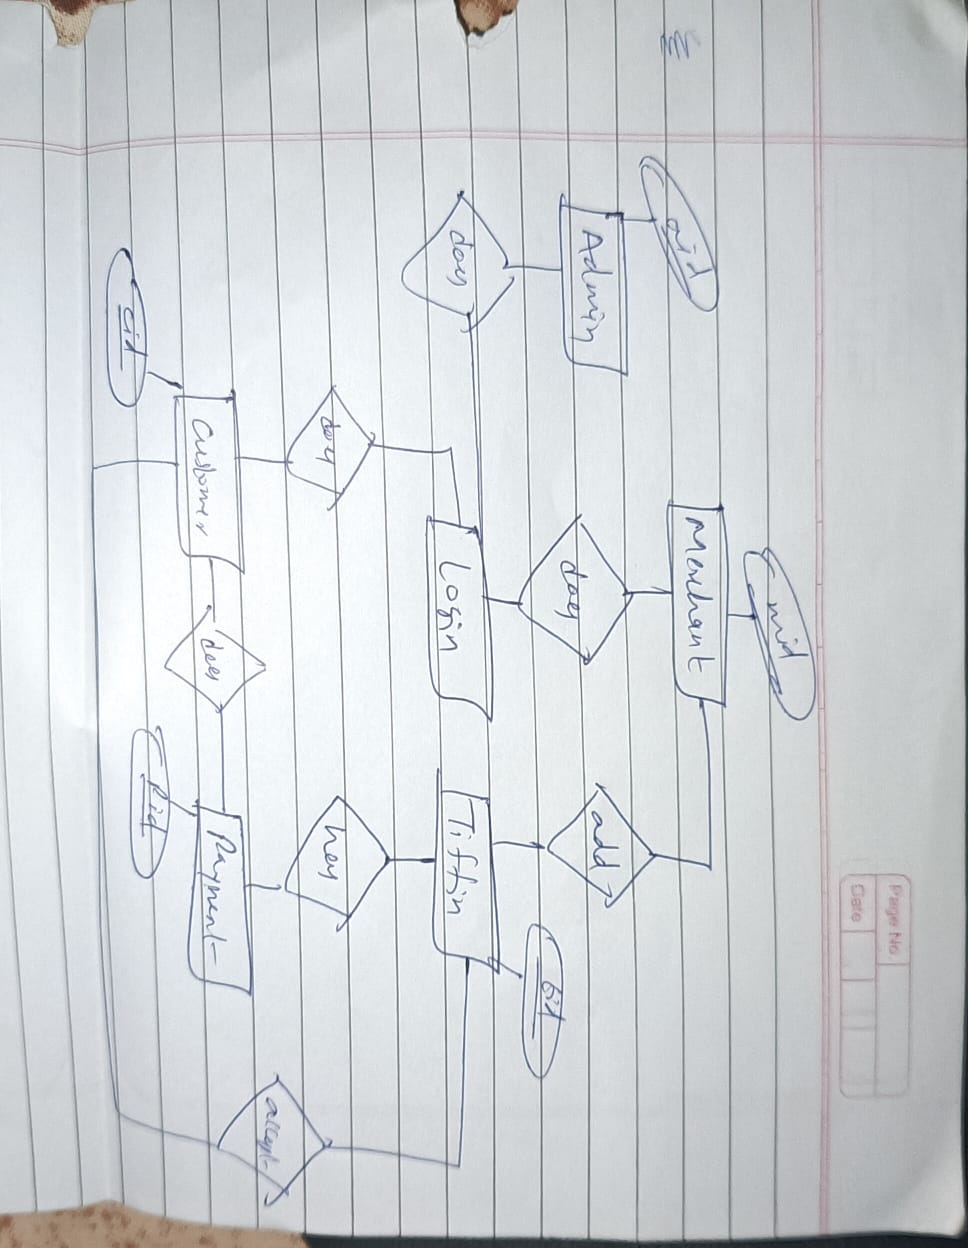 Page No.
Date
mid
Merchant
aid
Admin
add
does
tid
does
Login
Tiffin
does
has
accept
Customer
does
Payment
cid
Pid